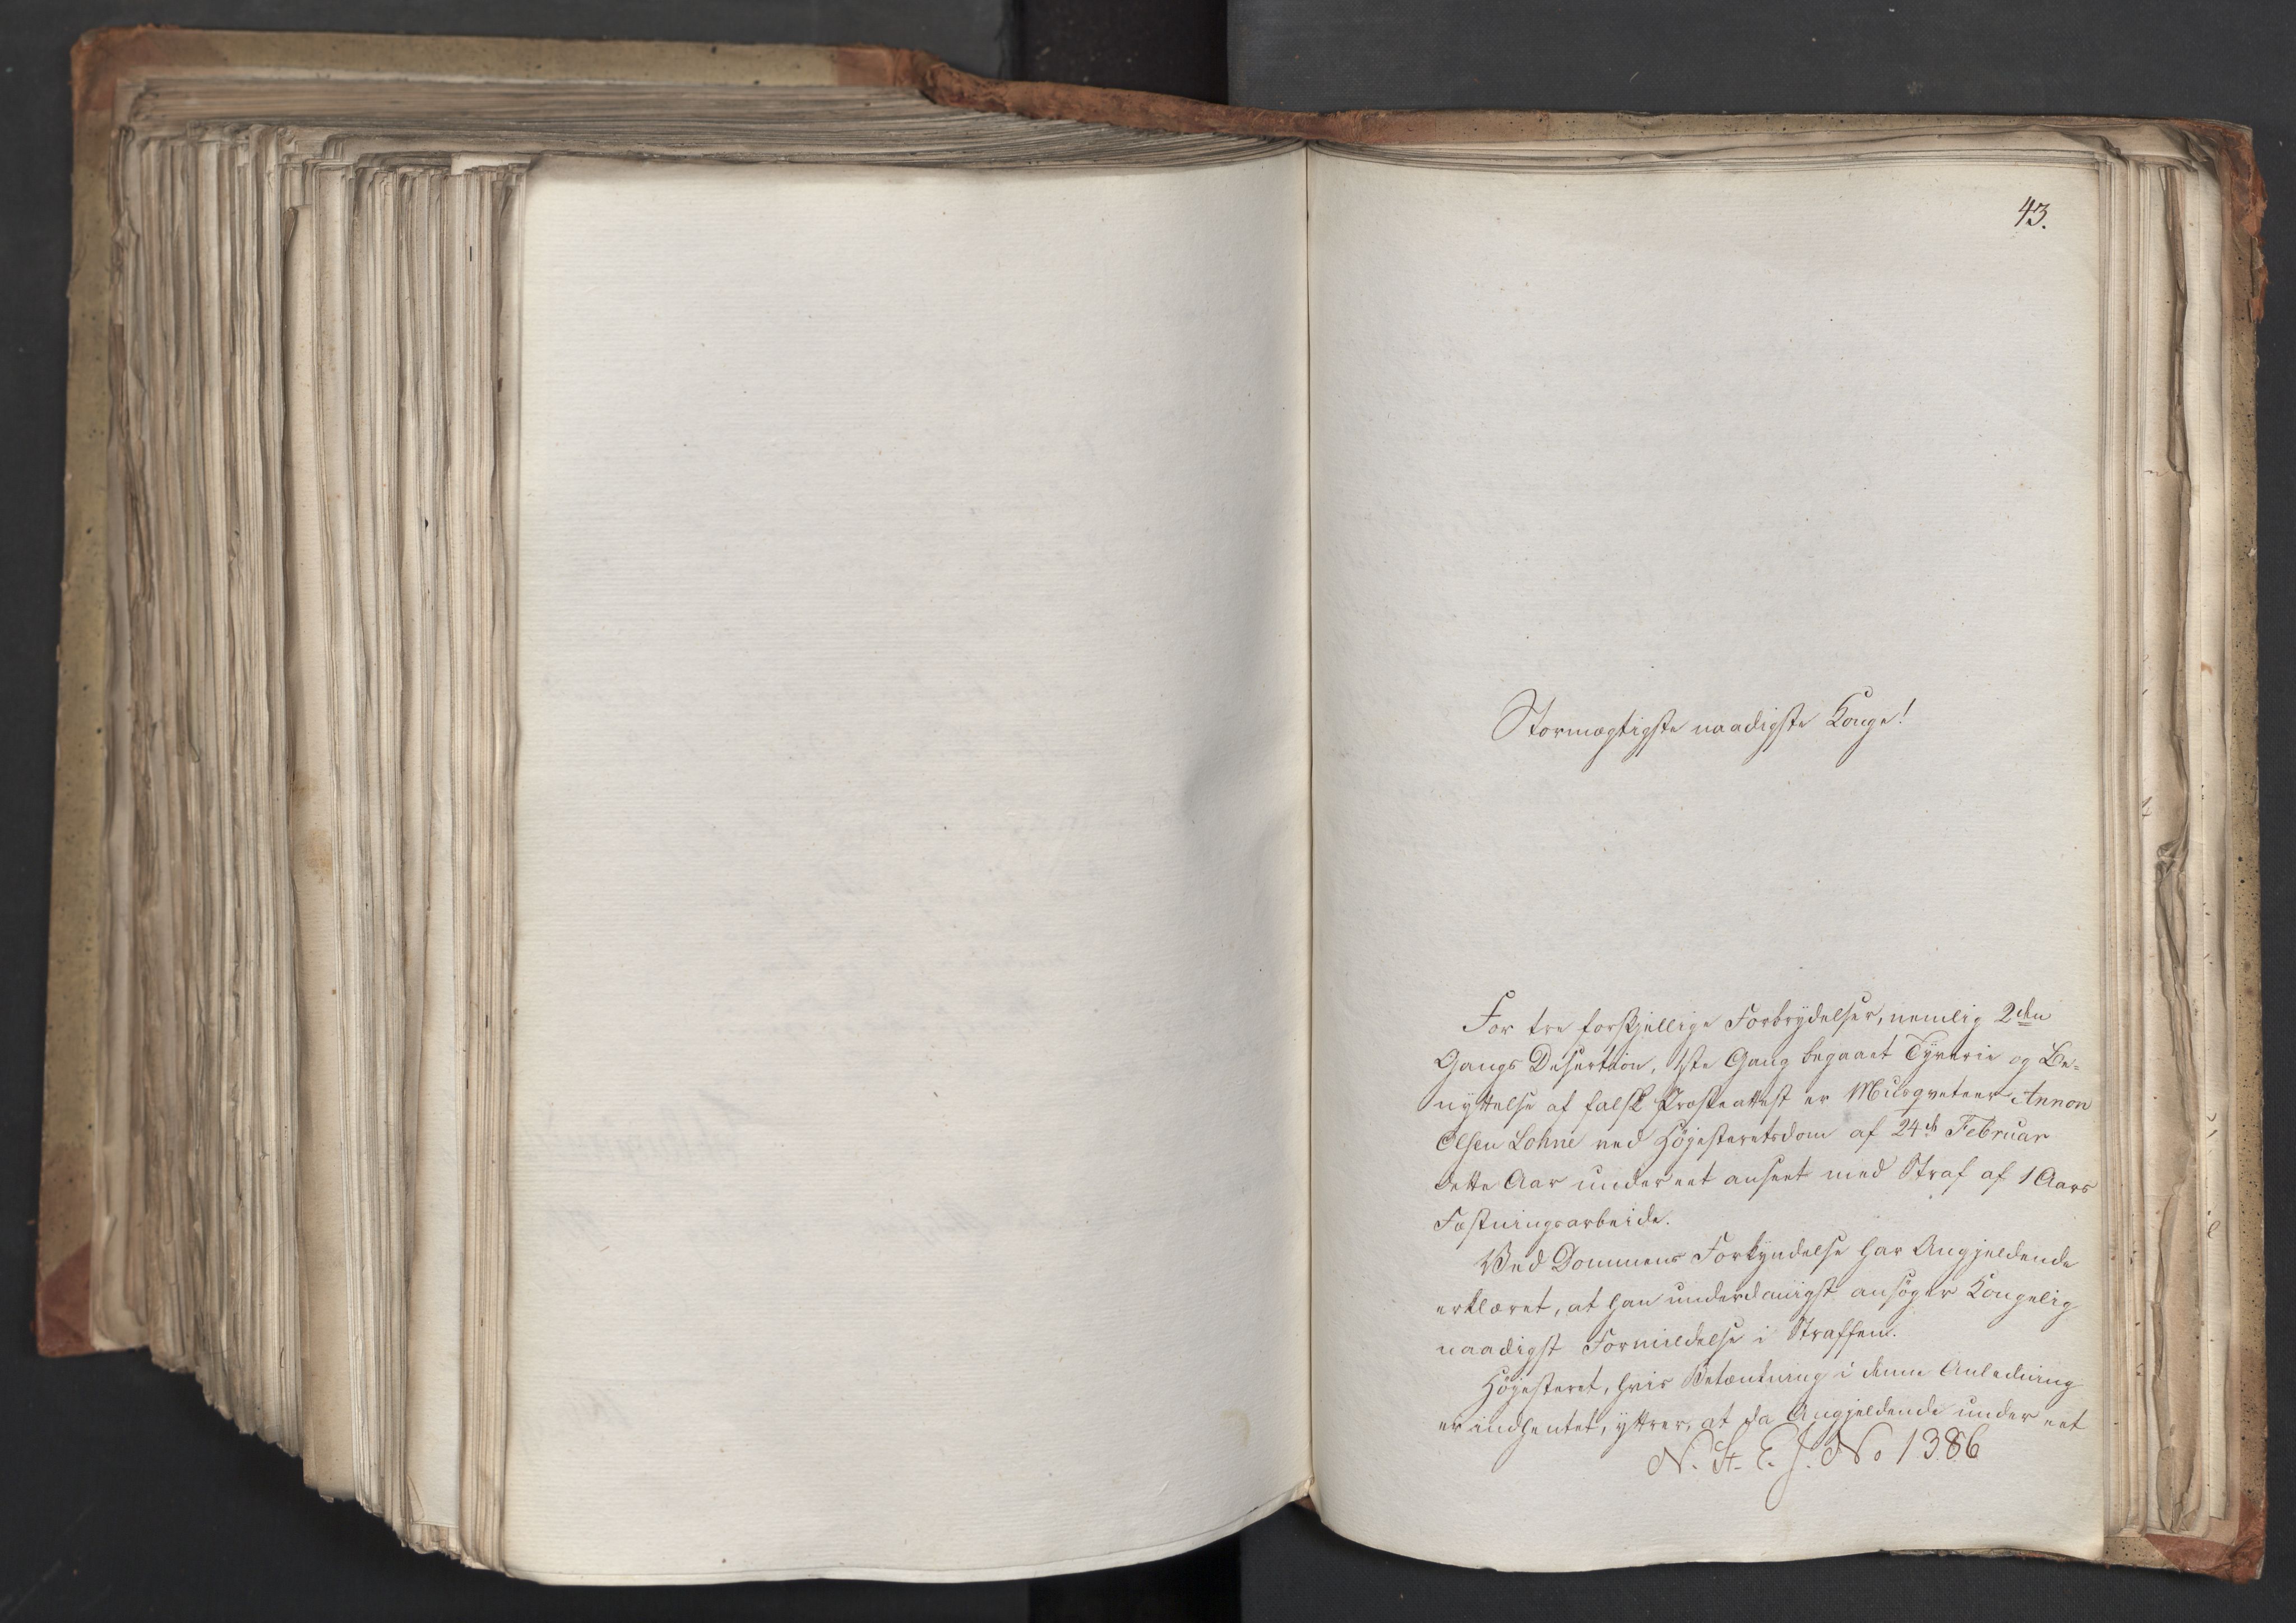 43.
Stormægtigste naadigste Konge!
For tre forskjellige Forbrydelser, nemlig 2den
Gangs Desertion, 1ste Gang begaaet Tyverie og Be-
nyttelse af falsk Præsteattest er Musqveteer Annon
Olsen Lohne ved Höjesteretsdom af 24de Februar
dette Aar under eet anseet med Straf af 1 Aars
Fæstningsarbeide.
Ved Dommens Forkyndelse har Angjeldende
erklæret, at han underdanigst ansöger Kongelig
naadigst Formildelse i Straffen.
Höjesteret, hvis Betænkning i denne Anledning
er indhentet, yttrer, at da Angjeldende under eet
N. St. E. J. No 1386